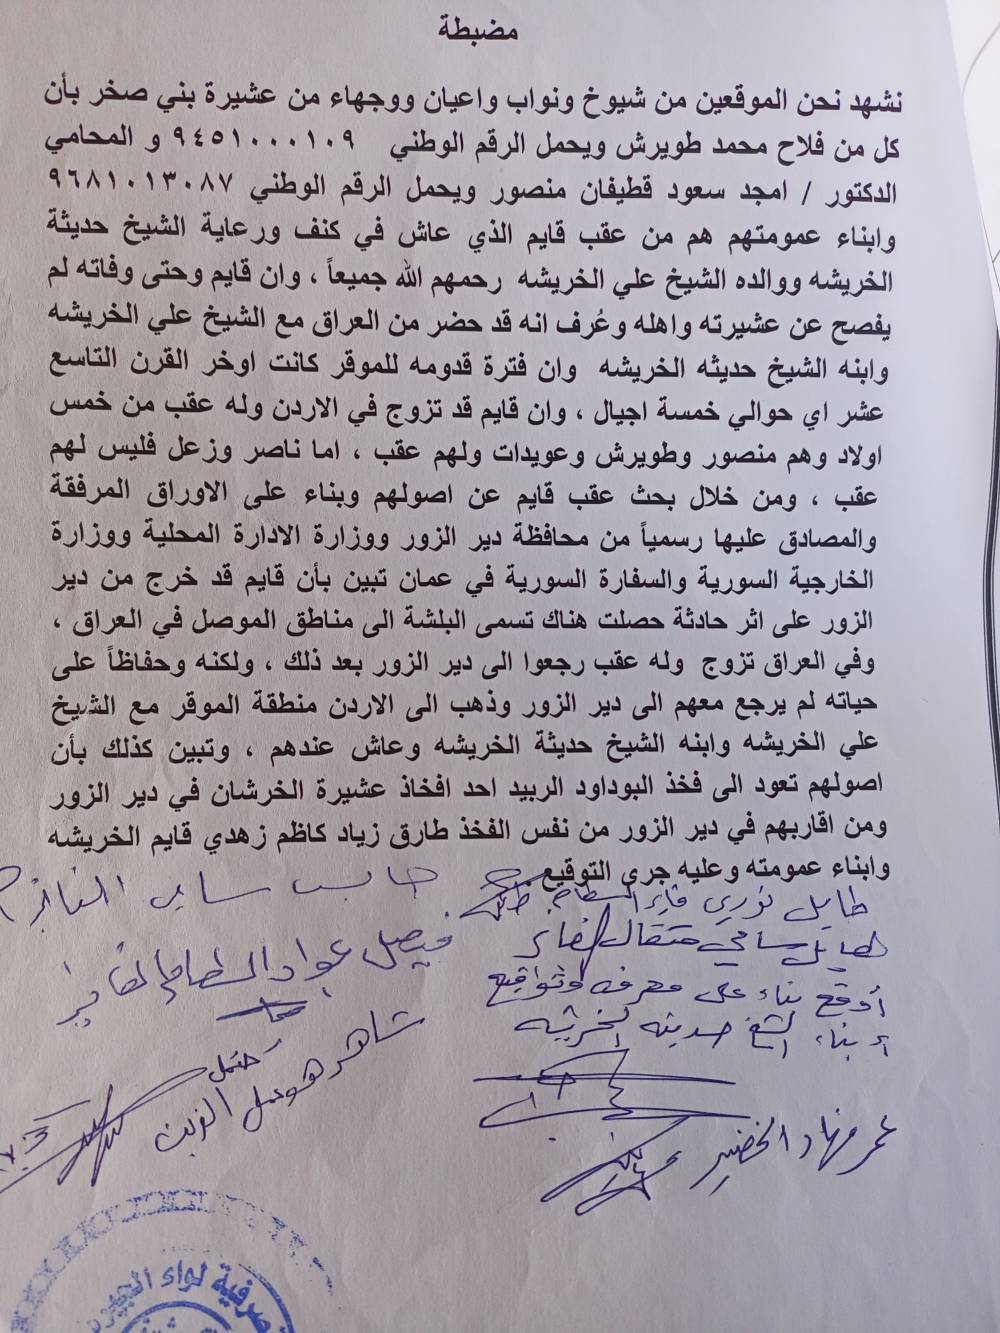 مضبطة
نشهد نحن الموقعين من شيوخ ونواب واعيان ووجهاء من عشيرة بني صخر بأن
كل من فلاح محمد طويرش ويحمل الرقم الوطني ٩٤٥١٠٠٠١٠٩ و المحامي
الدكتور / امجد سعود قطيفان منصور ويحمل الرقم الوطني ٩٦٨١٠١٣٠٨٧
وابناء عمومتهم هم من عقب قايم الذي عاش في كنف ورعاية الشيخ حديثة
الخريشه ووالده الشيخ علي الخريشه رحمهم الله جميعاً ، وان قايم وحتى وفاته لم
يفصح عن عشيرته واهله وعُرف انه قد حضر من العراق مع الشيخ علي الخريشه
وابنه الشيخ حديثه الخريشه وان فترة قدومه للموقر كانت اوخر القرن التاسع
عشر اي حوالي خمسة اجيال ، وان قايم قد تزوج في الاردن وله عقب من خمس
اولاد وهم منصور وطويرش وعويدات ولهم عقب ، اما ناصر وزعل فليس لهم
عقب ، ومن خلال بحث عقب قايم عن اصولهم وبناء على الاوراق المرفقة
والمصادق عليها رسمياً من محافظة دير الزور ووزارة الادارة المحلية ووزارة
الخارجية السورية والسفارة السورية في عمان تبين بأن قايم قد خرج من دير
الزور على اثر حادثة حصلت هناك تسمى البلشة الى مناطق الموصل في العراق ،
وفي العراق تزوج وله عقب رجعوا الى دير الزور بعد ذلك ، ولكنه وحفاظاً على
حياته لم يرجع معهم الى دير الزور وذهب الى الاردن منطقة الموقر مع الشيخ
علي الخريشه وابنه الشيخ حديثة الخريشه وعاش عندهم ، وتبين كذلك بأن
اصولهم تعود الى فخذ البوداود الربيد احد افخاذ عشيرة الخرشان في دير الزور
ومن اقاربهم في دير الزور من نفس الفخذ طارق زياد كاظم زهدي قايم الخريشه
وابناء عمومته وعليه جرى التوقيع
طايل نوري فايز السطام
طايل سامي مثقال الفايز
أوقع بناء على معرفه وتواقيع
أبناء الشيخ حديثه الخريشه
فيصل عواد السطام الفايز
شاهر هويمل الزبن
عمر نهار الخضير
لواء الجيزة